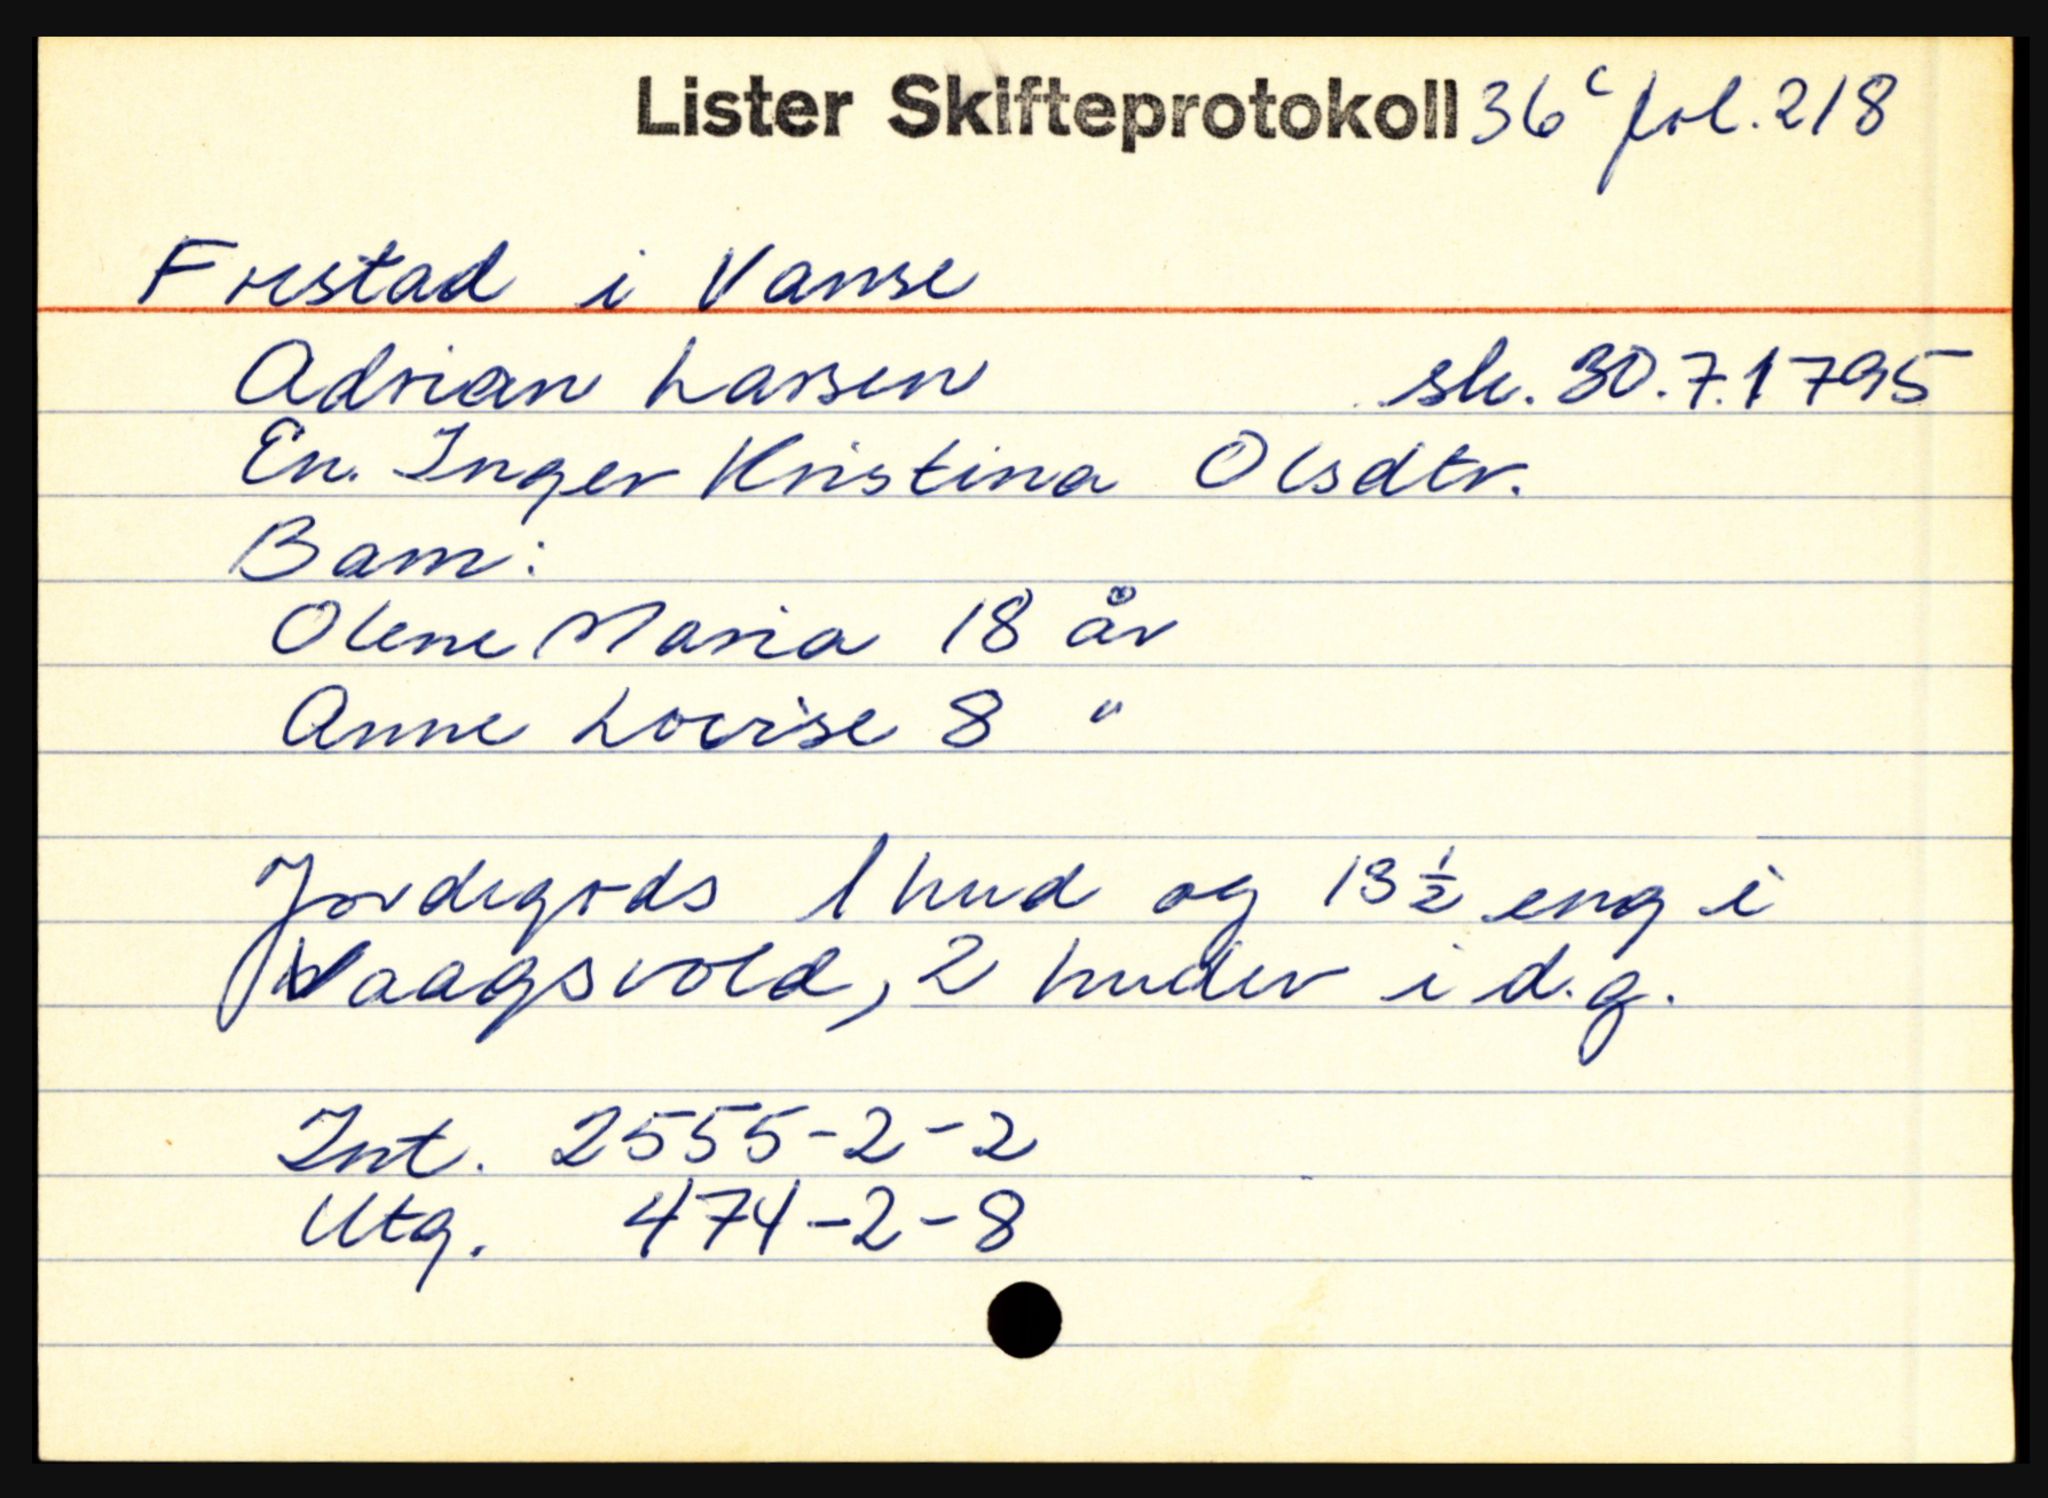 Lister Skifteprotokoll 36c fol. 218
Frestad i Vanse
Adrian Larsen sk. 30.7.1795
En. Inger Kristina Olsdtr.
Barn:
Olene Maria 18 år
Anne Lovise 8 "
Jordegods 1 hud og 13 1/2 eng i
Vaagsvold, 2 huder i d.g.
Int. 2555-2-2
Utg. 474-2-8